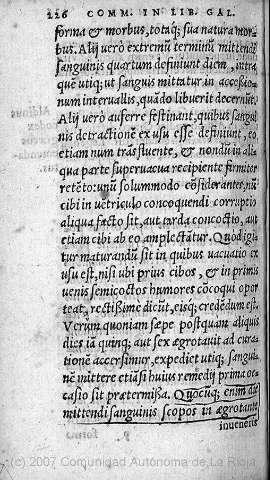 226 COMM. IN LIB. GAL.
forma & morbus, totaq́; sua natura mor-
bus. Alij verò extremũ terminũ mittendi
sanguinis quartum definiunt diem, intra
quẽ utiq; ut sanguis mittatur in accessio-
num interuallis, quãdo libuerit decernũt.
Alij verò auferre festinant, quibus sangui
nis detractionẽ ex usu esse definiunt, eo,
etiam num trãsfluente, & nondũ in ali-
qua parte superuacua recipiente firmiter
retẽto: unũ solummodo cõsiderantes, nũ
cibi in uẽtriculo concoquendi corruptio
aliqua facto sit, aut tarda concoctio, aut
etiam cibi ab eo amplectãtur. Quod igi-
tur maturandũ sit in quibus uacuatio ex
usu est, nisi ubi prius cibos, & in primis
uenis semicoctos humores cõcoqui opor
teat, rectißime dicũt, eisq; credẽdum est.
Verum quoniam sæpe postquam aliquis
dies iã quinq; aut sex ægrotauit ad cura-
tionẽ accersimur, expedit utiq; sangui-
nẽ mittere etiãsi huius remedij prima oc-
casio sit prætermißa. Quocũq; enim die
mittendi sanguinis scopos in ægrotante
inueneris
(c) 2007 Comunidad Autónoma de La Rioja